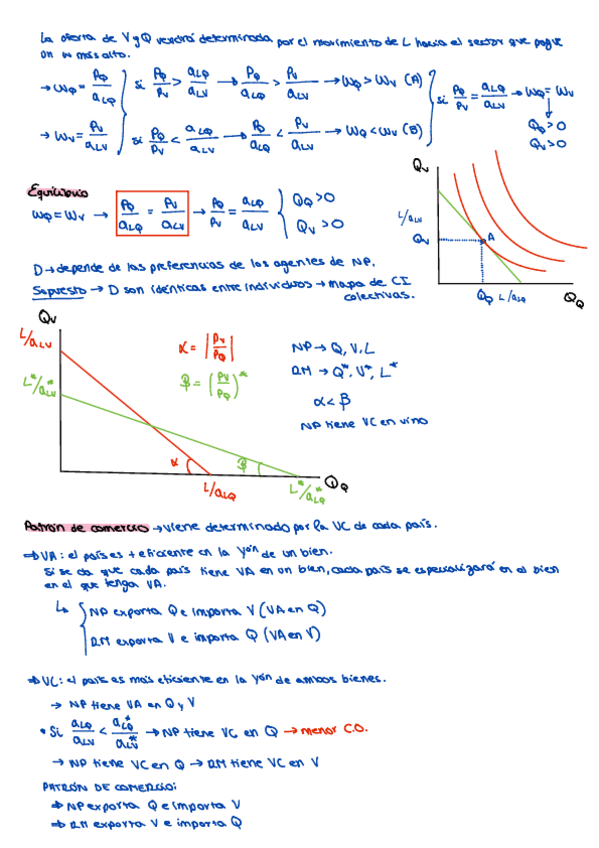 La oferta de V y Q vendrá determinada por el movimiento de L hacia el sector que pague
un w más alto.
→ wQ = PQ/aLQ } si PQ/PV > aLQ/aLV → PQ/aLQ > PV/aLV → wQ > wV (A) } si PQ/PV = aLQ/aLV → wQ = wV
→ wV = PV/aLV } si PQ/PV < aLQ/aLV → PQ/aLQ < PV/aLV → wQ < wV (B)
QQ > 0
QV > 0
Equilibrio
wQ = wV → PQ/aLQ = PV/aLV → PQ/PV = aLQ/aLV { QQ > 0
QV > 0
QV
L/aLV
QV
A
QQ L/aLQ QQ
D → depende de las preferencias de los agentes de NP.
Supuesto → D son idénticas entre individuos → mapa de CI
colectivas.
QV
L/aLV
L*/a*LV
α = |PV/PQ|
β = (PV/PQ)*
α
β
L/aLQ
L*/a*LQ
QQ
NP → Q, V, L
RM → Q*, V*, L*
α < β
NP tiene VC en vino
Patrón de comercio → viene determinado por la VC de cada país.
⇒ VA: el país es + eficiente en la yón de un bien.
Si se da que cada país tiene VA en un bien, cada país se especializará en el bien
en el que tenga VA.
↳ { NP exporta Q e importa V (VA en Q)
RM exporta V e importa Q (VA en V)
⇒ VC: el país es más eficiente en la yón de ambos bienes.
→ NP tiene VA en Q y V
• Si aLQ/aLV < a*LQ/a*LV → NP tiene VC en Q → menor C.O.
→ NP tiene VC en Q → RM tiene VC en V
PATRÓN DE COMERCIO:
⇒ NP exporta Q e importa V
⇒ RM exporta V e importa Q